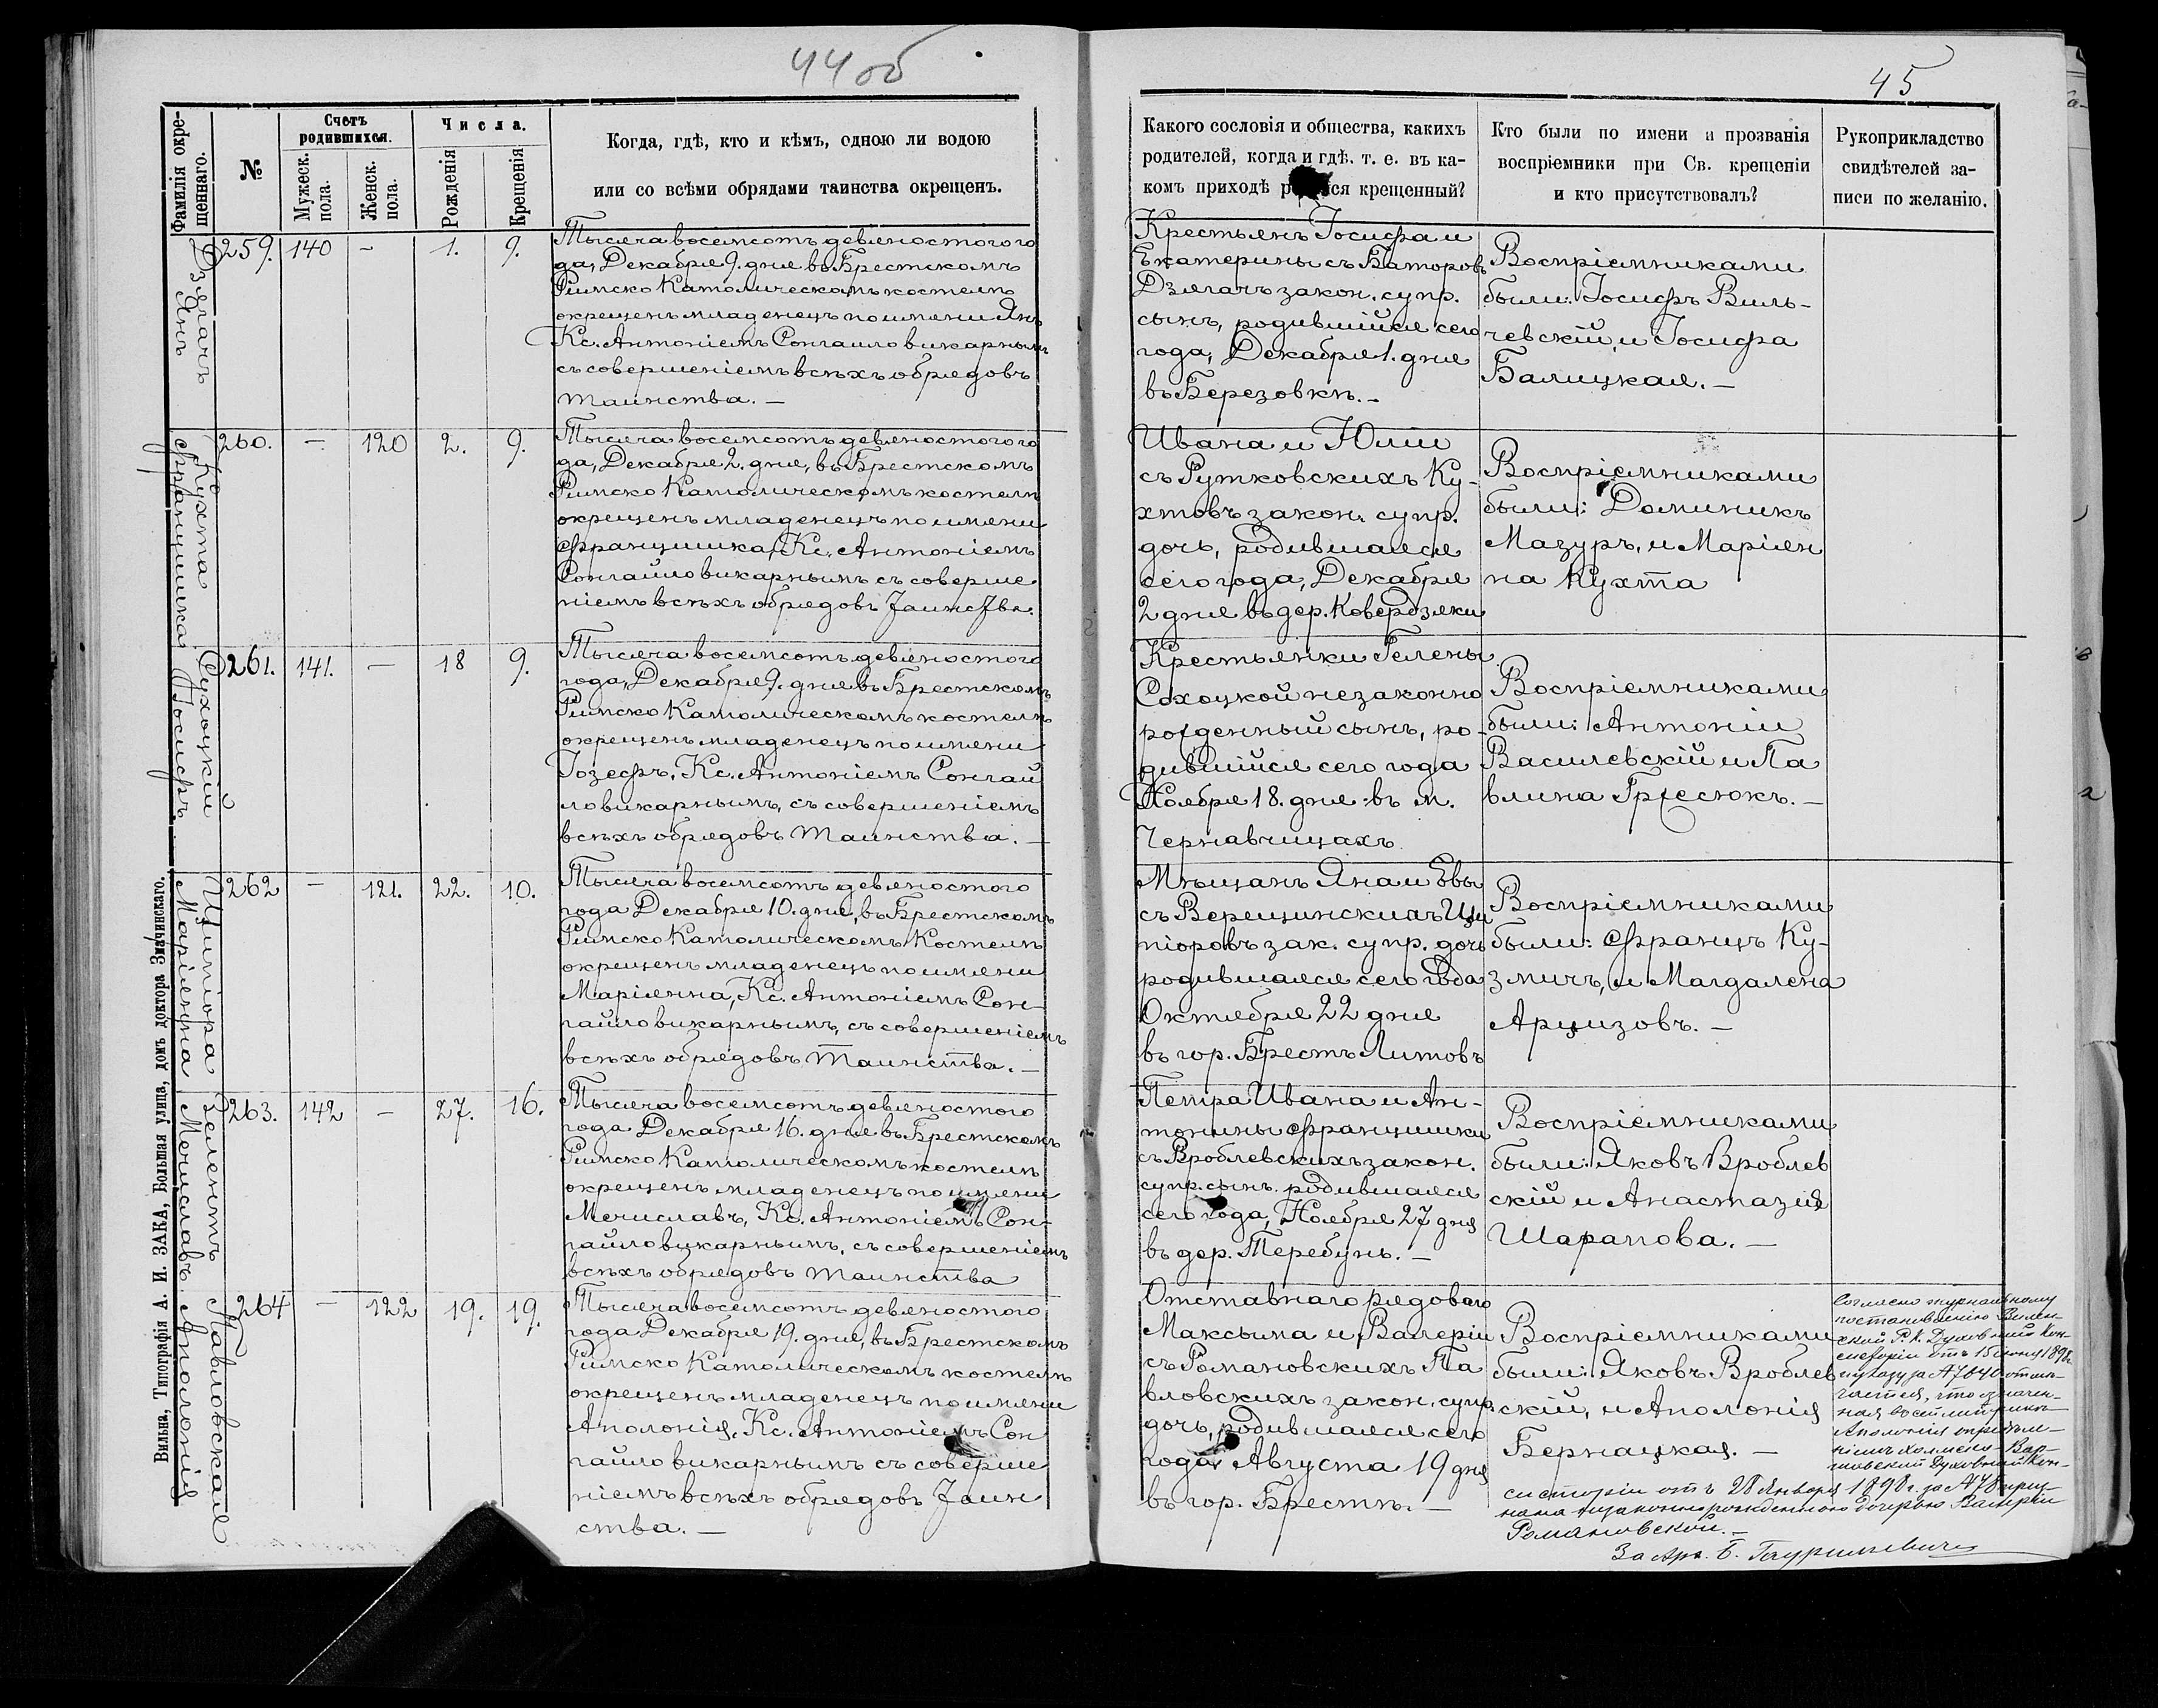 44 об
45
Фамилія окре-
щеннаго.
№
Счетъ
родившихся.
Мужеск.
пола.
Женск.
пола.
Числа.
Рожденія
Крещенія
Когда, гдѣ, кто и кѣмъ, одною ли водою
или со всѣми обрядами таинства окрещенъ.
Какого сословія и общества, какихъ
родителей, когда и гдѣ. т. е. въ ка-
комъ приходѣ крещенный?
Кто были по имени и прозванія
воспріемники при Св. крещеніи
и кто присутствовалъ?
Рукоприкладство
свидѣтелей за-
писи по желанію.
Дзягачъ
Янъ
259. 140 - 1. 9.
Тысяча восемсотъ девяностого го
да, Декабря 9. дня въ Брестскомъ
Римско Католическомъ костелѣ
окрещенъ младенецъ по имени Янъ
Кс. Антоніемъ Сонгаило викарнымъ
съ совершеніемъ всѣхъ обрядовъ
таинства. —
Крестьянъ Іосифа и
Екатерины съ Баторовъ
Дзягачъ закон. супр.
сынъ, родившійся сего
года, Декабря 1. дня
въ Березовкѣ. -
Воспріемниками
были: Іосифъ Виль-
чевскій, и Іосифа
Балицкая. —
Кухта
Францишка
260. — 120 2. 9.
Тысяча восемсотъ девяностого го
да, Декабря 2. дня, въ Брестскомъ
Римско Католическомъ костелѣ
окрещенъ младенецъ по имени
Францишка, Кс. Антоніемъ
Сонгайло викарнымъ съ соверше
ніемъ всѣхъ обрядовъ Таинства.
Ивана и Юліи
съ Рутковскихъ Ку-
хтовъ закон. супр.
дочь, родившаяся
сего года, Декабря
2 дня въ дер. Ковердзяки
Воспріемниками
были: Доминикъ
Мазуръ, и Маріян
на Кухта
Сухоцкій
Іосифъ
261. 141. — 18 9.
Тысяча восемсотъ девяностого
года, Декабря 9. дня въ Брестскомъ
Римско Католическомъ костелѣ
окрещенъ младенецъ по имени
Іозефъ, Кс. Антоніемъ Сонгай
ло викарнымъ, съ совершеніемъ
всѣхъ обрядовъ таинства. —
Крестьянки Гелены
Сохоцкой незаконно
рожденный сынъ, ро-
дившійся сего года
Ноября 18. дня въ м.
Чернавчицахъ
Воспріемниками
были: Антоніи
Василевскій и Па
влина Грисюкъ. —
Ципіора
Маріянна
262 — 121. 22. 10.
Тысяча восемсотъ девяностого
года Декабря 10. дня, въ Брестскомъ
Римско Католическомъ Костелѣ
окрещенъ младенецъ по имени
Маріянна, Кс. Антоніемъ Сон-
гайло викарнымъ, съ совершеніемъ
всѣхъ обрядовъ Таинства. —
Мѣщанъ Яна и Евы
съ Верещинскихъ Ци
піоровъ зак. супр. дочь
родившаяся сего года
Октября 22 дня
въ гор. Брестъ Литовъ
Воспріемниками
были: Францъ Ку-
змичъ, и Магдалена
Арцизовъ. —
Зелентъ
Мечиславъ
263. 142 — 27. 16.
Тысяча восемсотъ девяностого
года Декабря 16. дня въ Брестскомъ
Римско Католическомъ костелѣ
окрещенъ младенецъ по имени
Мечиславъ, Кс. Антоніемъ Сон-
гайло викарнымъ, съ совершеніемъ
всѣхъ обрядовъ таинства
Петра Ивана и Ан-
тонины Францишки
съ Вроблевскихъ закон.
супр. сынъ. родившаяся
сего года, Ноября 27 дня
въ дер. Теребунь. —
Воспріемниками
были: Яковъ Вроблев
скій и Анастазія
Шарапова. —
Павловская
Аполонія
264 — 122 19. 19.
Тысяча восемсотъ девяностого
года Декабря 19. дня, въ Брестскомъ
Римско Католическомъ костелѣ
окрещенъ младенецъ по имени
Аполонія, Кс. Антоніемъ Сон
гайло викарнымъ съ соверше
ніемъ всѣхъ обрядовъ Таин
ства. —
Отставнаго рядоваго
Максыма и Валеріи
съ Романовскихъ Па
вловскихъ закон. супр.
дочь, родившаяся сего
года, Августа 19 дня
въ гор. Брестѣ. —
Воспріемниками
были: Яковъ Вроблев
скій, и Аполонія
Бернацкая. —
Согласно журнальному
постановленію Вилен-
ской Р. К. Духовной Кон-
систоріи отъ 15 1898
отмѣ-
чается, что означен-
ная
Аполонія опредѣле-
ніемъ Холмско-Вар-
шавской Духовной Кон-
систоріи отъ 28 Января 1898 г. за № 78 приз-
нана незаконнорожденною дочерью Валеріи
Романовской. —
Вильна, Типографія А. И. ЗАКА, Большая улица, домъ доктора Змачинскаго.